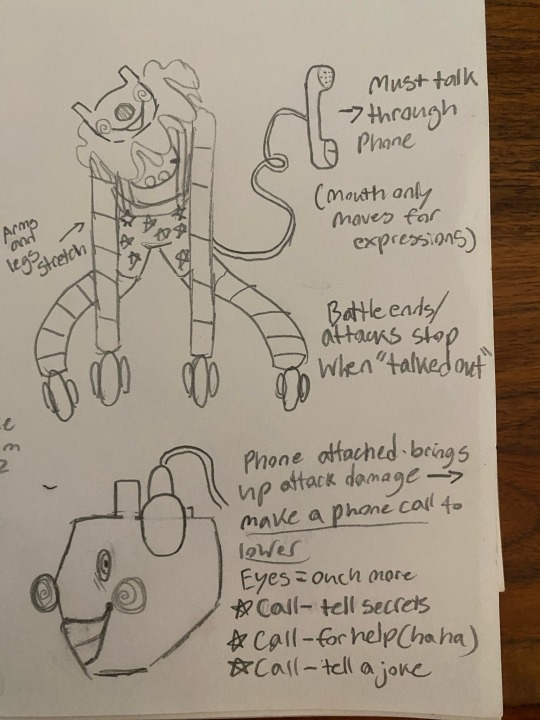 Must talk
→ through
Phone
(mouth only
moves for
expressions)
Arms
and
legs
stretch
Battle ends/
attacks stop
when "talked out"
Phone attached·brings
up attack damage →
make a phone call to
lower
Eyes = ouch more
☆ Call - tell secrets
☆ Call - for help (haha)
☆ Call - tell a joke